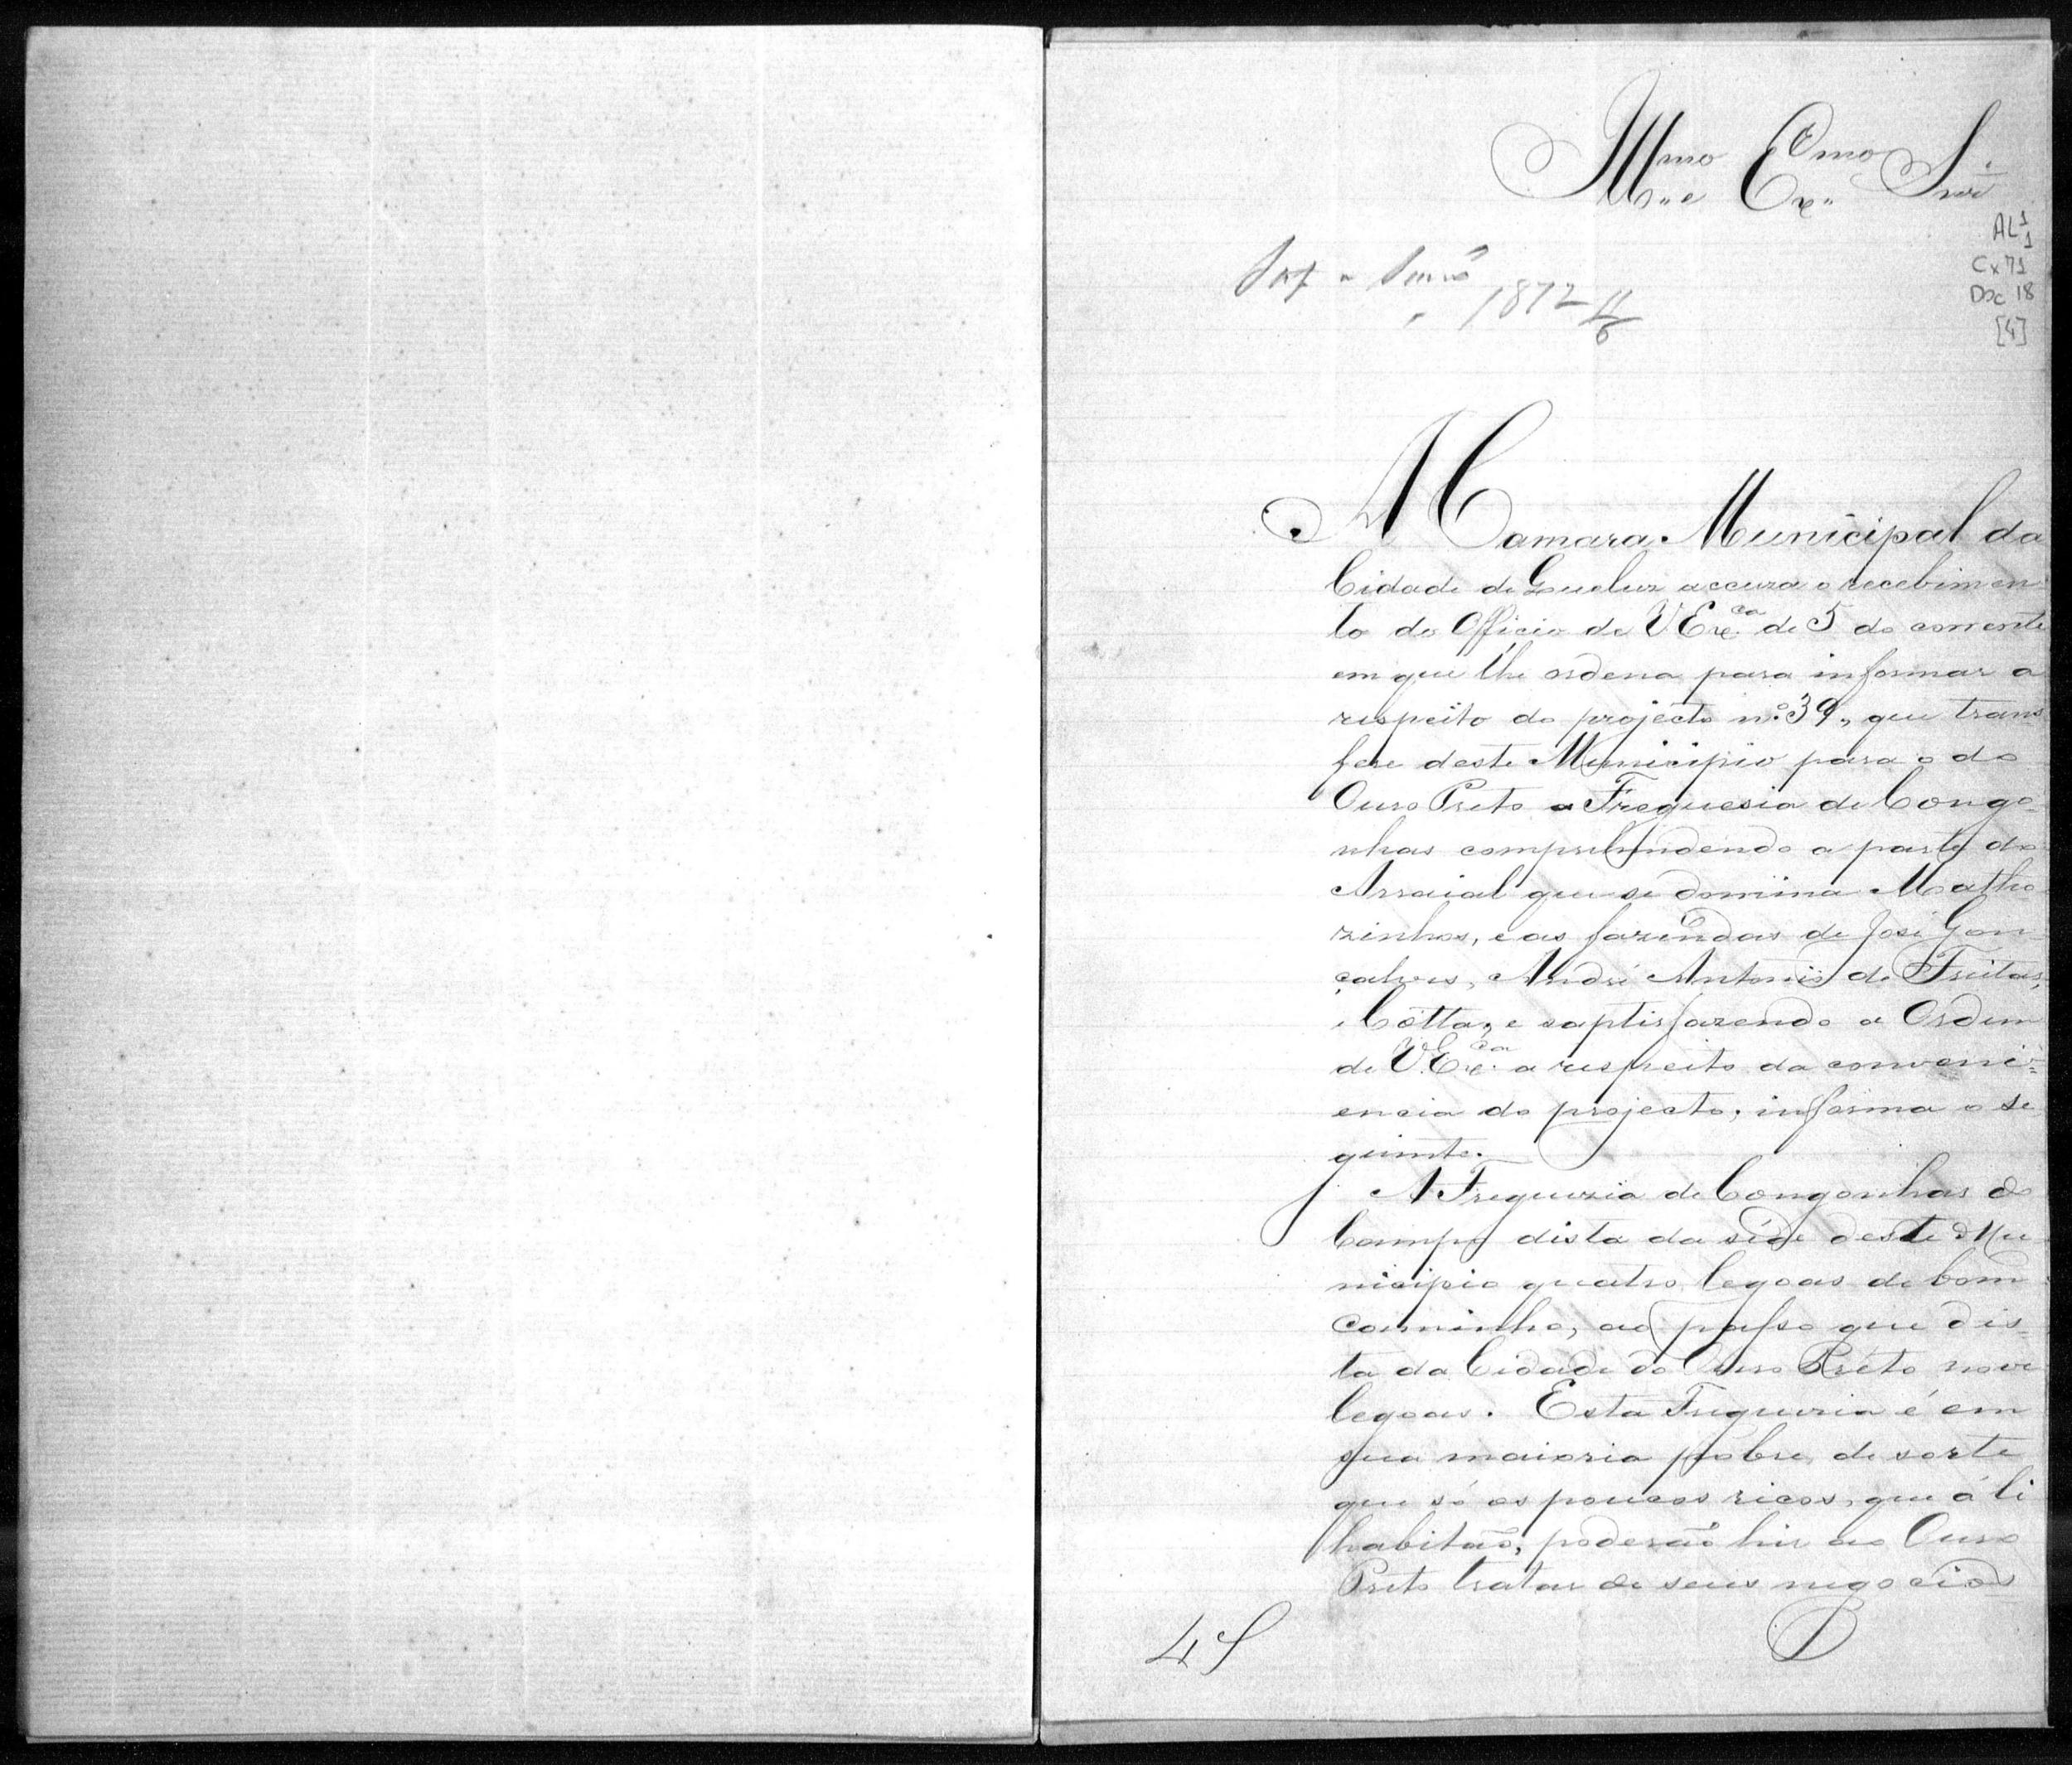 Illmo e Exmo Snr
AL1
1
Cx71
Doc 18
[4]
1872 11/6
A Camara Municipal da
Cidade de Queluz accuza o recebimen
to do Officio de V Exca de 5 do corrente
em que lhe ordena para informar a
respeito do projecto nº 39, que trans
fere deste Municipio para o do
Ouro Preto a Freguesia de Congo-
nhas comprehendendo a parte do
Arraial que se domina Matho
zinhos, e as fazendas de José Gon
çalves, André Antonio de Freitas,
e Cotta, e saptisfazendo a Ordem
de V. Exca a respeito da conveni=
encia do projecto, informa o se
guinte.
A Freguezia de Congonhas do
Campo dista da séde deste Mu
nicipio quatro legoas de bom
caminho, ao passo que dis-
ta da Cidade do Ouro Preto nove
legoas. Esta Freguezia é em
sua maioria pobre, de sorte
que só os poucos ricos, que á li
habitão, poderão hir ao Ouro
Preto tratar de seus negocios